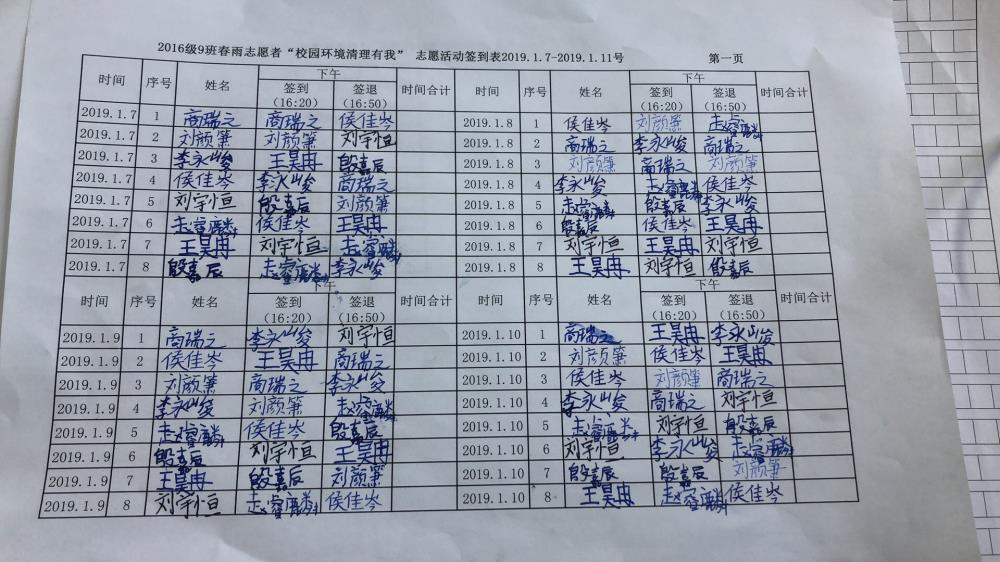 2016级9班春雨志愿者“校园环境清理有我” 志愿活动签到表2019.1.7-2019.1.11号 第一页
时间 序号 姓名 下午 时间合计 时间 序号 姓名 下午 时间合计
签到 签退 签到 签退
(16:20) (16:50) (16:20) (16:50)
2019.1.7 1 商瑞之 商瑞之 侯佳岑 2019.1.8 1 侯佳岑 刘颜箫 赵睿
2019.1.7 2 刘颜箫 刘颜箫 刘宇恒 2019.1.8 2 商瑞之 李永峻 商瑞之
2019.1.7 3 李永峻 王昊冉 殷嘉辰 2019.1.8 3 刘颜箫 商瑞之 刘颜箫
2019.1.7 4 侯佳岑 李永峻 商瑞之 2019.1.8 4 李永峻 赵睿麟 侯佳岑
2019.1.7 5 刘宇恒 殷嘉辰 刘颜箫 2019.1.8 5 赵睿麟 殷嘉辰 李永峻
2019.1.7 6 赵睿麟 侯佳岑 王昊冉 2019.1.8 6 殷嘉辰 侯佳岑 王昊冉
2019.1.7 7 王昊冉 刘宇恒 赵睿麟 2019.1.8 7 刘宇恒 王昊冉 刘宇恒
2019.1.7 8 殷嘉辰 赵睿麟 李永峻 2019.1.8 8 王昊冉 刘宇恒 殷嘉辰
时间 序号 姓名 下午 时间合计 时间 序号 姓名 下午 时间合计
签到 签退 签到 签退
(16:20) (16:50) (16:20) (16:50)
2019.1.9 1 商瑞之 李永峻 刘宇恒 2019.1.10 1 商瑞之 王昊冉 李永峻
2019.1.9 2 侯佳岑 王昊冉 商瑞之 2019.1.10 2 刘颜箫 侯佳岑 王昊冉
2019.1.9 3 刘颜箫 商瑞之 李永峻 2019.1.10 3 侯佳岑 刘颜箫 商瑞之
2019.1.9 4 李永峻 刘颜箫 赵睿麟 2019.1.10 4 李永峻 商瑞之 刘宇恒
2019.1.9 5 赵睿麟 侯佳岑 殷嘉辰 2019.1.10 5 赵睿麟 刘宇恒 殷嘉辰
2019.1.9 6 殷嘉辰 刘宇恒 王昊冉 2019.1.10 6 刘宇恒 李永峻 赵睿麟
2019.1.9 7 王昊冉 殷嘉辰 刘颜箫 2019.1.10 7 殷嘉辰 殷嘉辰 刘颜箫
2019.1.9 8 刘宇恒 赵睿麟 侯佳岑 2019.1.10 8 王昊冉 赵睿麟 侯佳岑